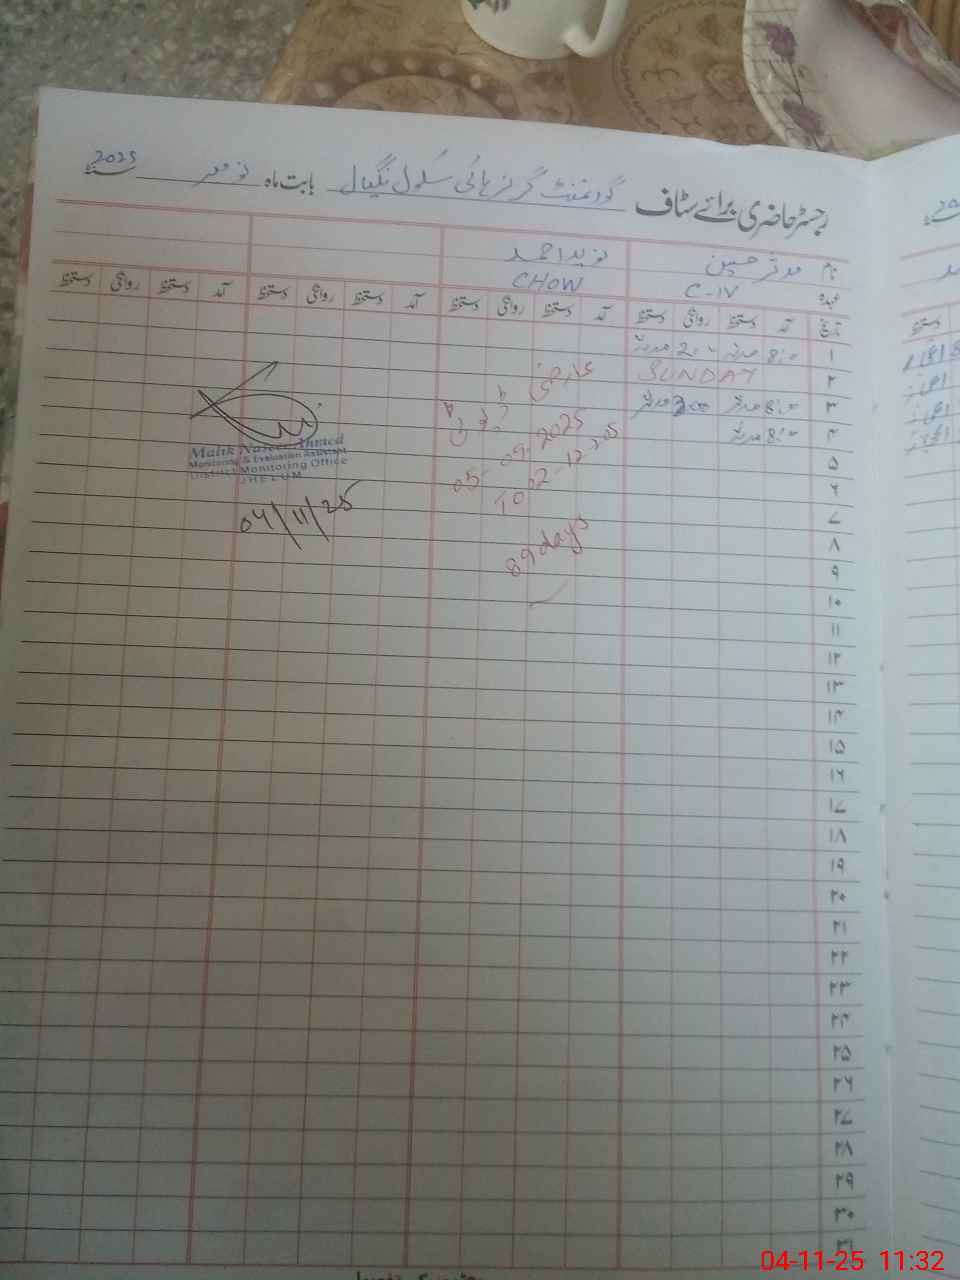 رجسٹر حاضری برائے سٹاف گورنمنٹ گرلز ہائی سکول نگیال بابت ماہ نومبر سنہ 2025
نام مدثر حسین نوید احمد
عہدہ C-IV CHOW
تاریخ آمد دستخط روانگی دستخط آمد دستخط روانگی دستخط آمد دستخط روانگی دستخط آمد دستخط روانگی دستخط
۱ 8:00 مدثر 2:00 مدثر
۲ SUNDAY
۳ 8:00 مدثر 2:00 مدثر
۴ 8:00 مدثر
۵
۶
۷
۸
۹
۱۰
۱۱
۱۲
۱۳
۱۴
۱۵
۱۶
۱۷
۱۸
۱۹
۲۰
۲۱
۲۲
۲۳
۲۴
۲۵
۲۶
۲۷
۲۸
۲۹
۳۰
۳۱
05-09-2025
To 02-12-2025
89 days
Malik Naseer Ahmed
Monitoring & Evaluation Assistant
District Monitoring Office
JHELUM
04/11/25
04-11-25 11:32